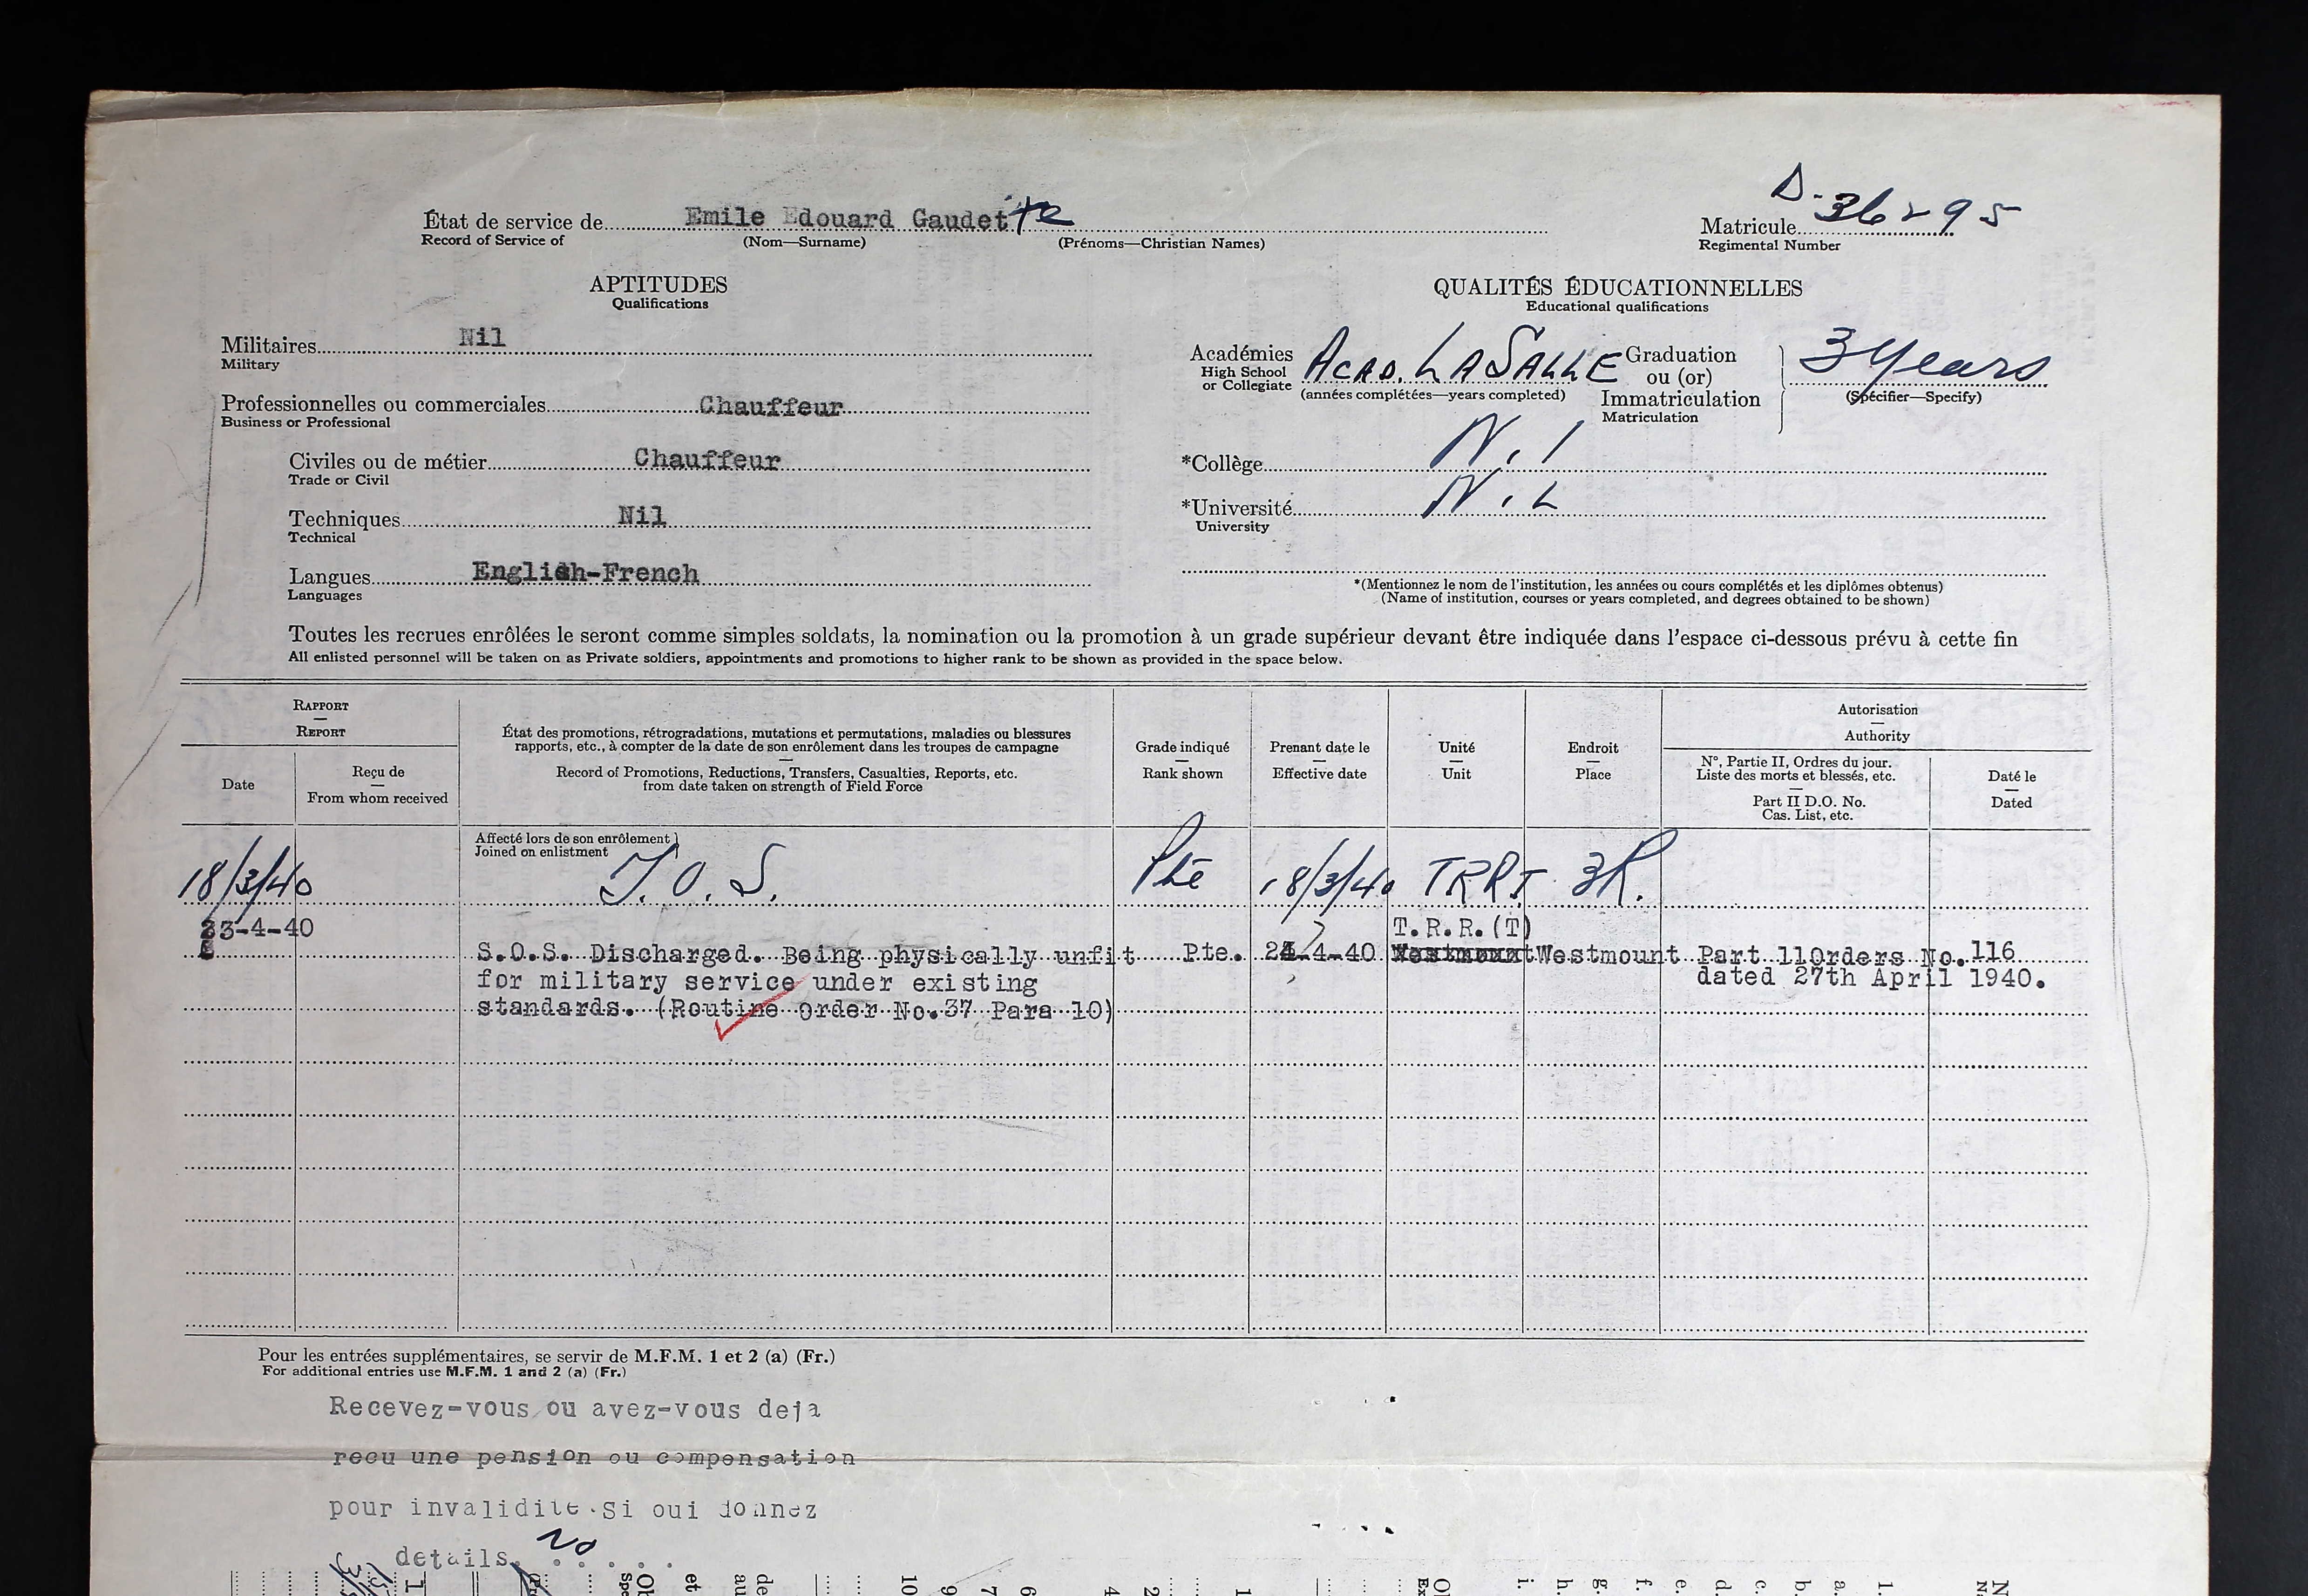 État de service de Emile Edouard Gaudette Matricule D-36295
Record of Service of (Nom—Surname) (Prénoms—Christian Names) Regimental Number
APTITUDES
Qualifications
QUALITÉS ÉDUCATIONNELLES
Educational qualifications
Militaires Nil
Military
Professionnelles ou commerciales Chauffeur
Business or Professional
Civiles ou de métier Chauffeur
Trade or Civil
Techniques Nil
Technical
Langues English-French
Languages
Académies ACAD. LASALLE Graduation 3 Years
High School ou (or)
or Collegiate (années complétées—years completed) Immatriculation (Spécifier—Specify)
Matriculation
*Collège Nil
*Université Nil
University
*(Mentionnez le nom de l'institution, les années ou cours complétés et les diplômes obtenus)
(Name of institution, courses or years completed, and degrees obtained to be shown)
Toutes les recrues enrôlées le seront comme simples soldats, la nomination ou la promotion à un grade supérieur devant être indiquée dans l'espace ci-dessous prévu à cette fin
All enlisted personnel will be taken on as Private soldiers, appointments and promotions to higher rank to be shown as provided in the space below.
RAPPORT
—
REPORT
Date
Reçu de
—
From whom received
État des promotions, rétrogradations, mutations et permutations, maladies ou blessures
rapports, etc., à compter de la date de son enrôlement dans les troupes de campagne
—
Record of Promotions, Reductions, Transfers, Casualties, Reports, etc.
from date taken on strength of Field Force
Grade indiqué
—
Rank shown
Prenant date le
—
Effective date
Unité
—
Unit
Endroit
—
Place
Autorisation
—
Authority
N°, Partie II, Ordres du jour.
Liste des morts et blessés, etc.
—
Part II D.O. No.
Cas. List, etc.
Daté le
—
Dated
Affecté lors de son enrôlement
Joined on enlistment
18/3/40 T.O.S. Pte 18/3/40 TRRT 3R.
23-4-40 T.R.R.(T)
S.O.S. Discharged. Being physically unfit Pte. -4-40 Westmount Westmount Part 11Orders No.116
for military service under existing dated 27th April 1940.
standards. (Routine Order No.37 Para 10)
Pour les entrées supplémentaires, se servir de M.F.M. 1 et 2 (a) (Fr.)
For additional entries use M.F.M. 1 and 2 (a) (Fr.)
Recevez-vous ou avez-vous deja
recu une pension ou compensation
pour invalidite.Si oui donnez
details. No